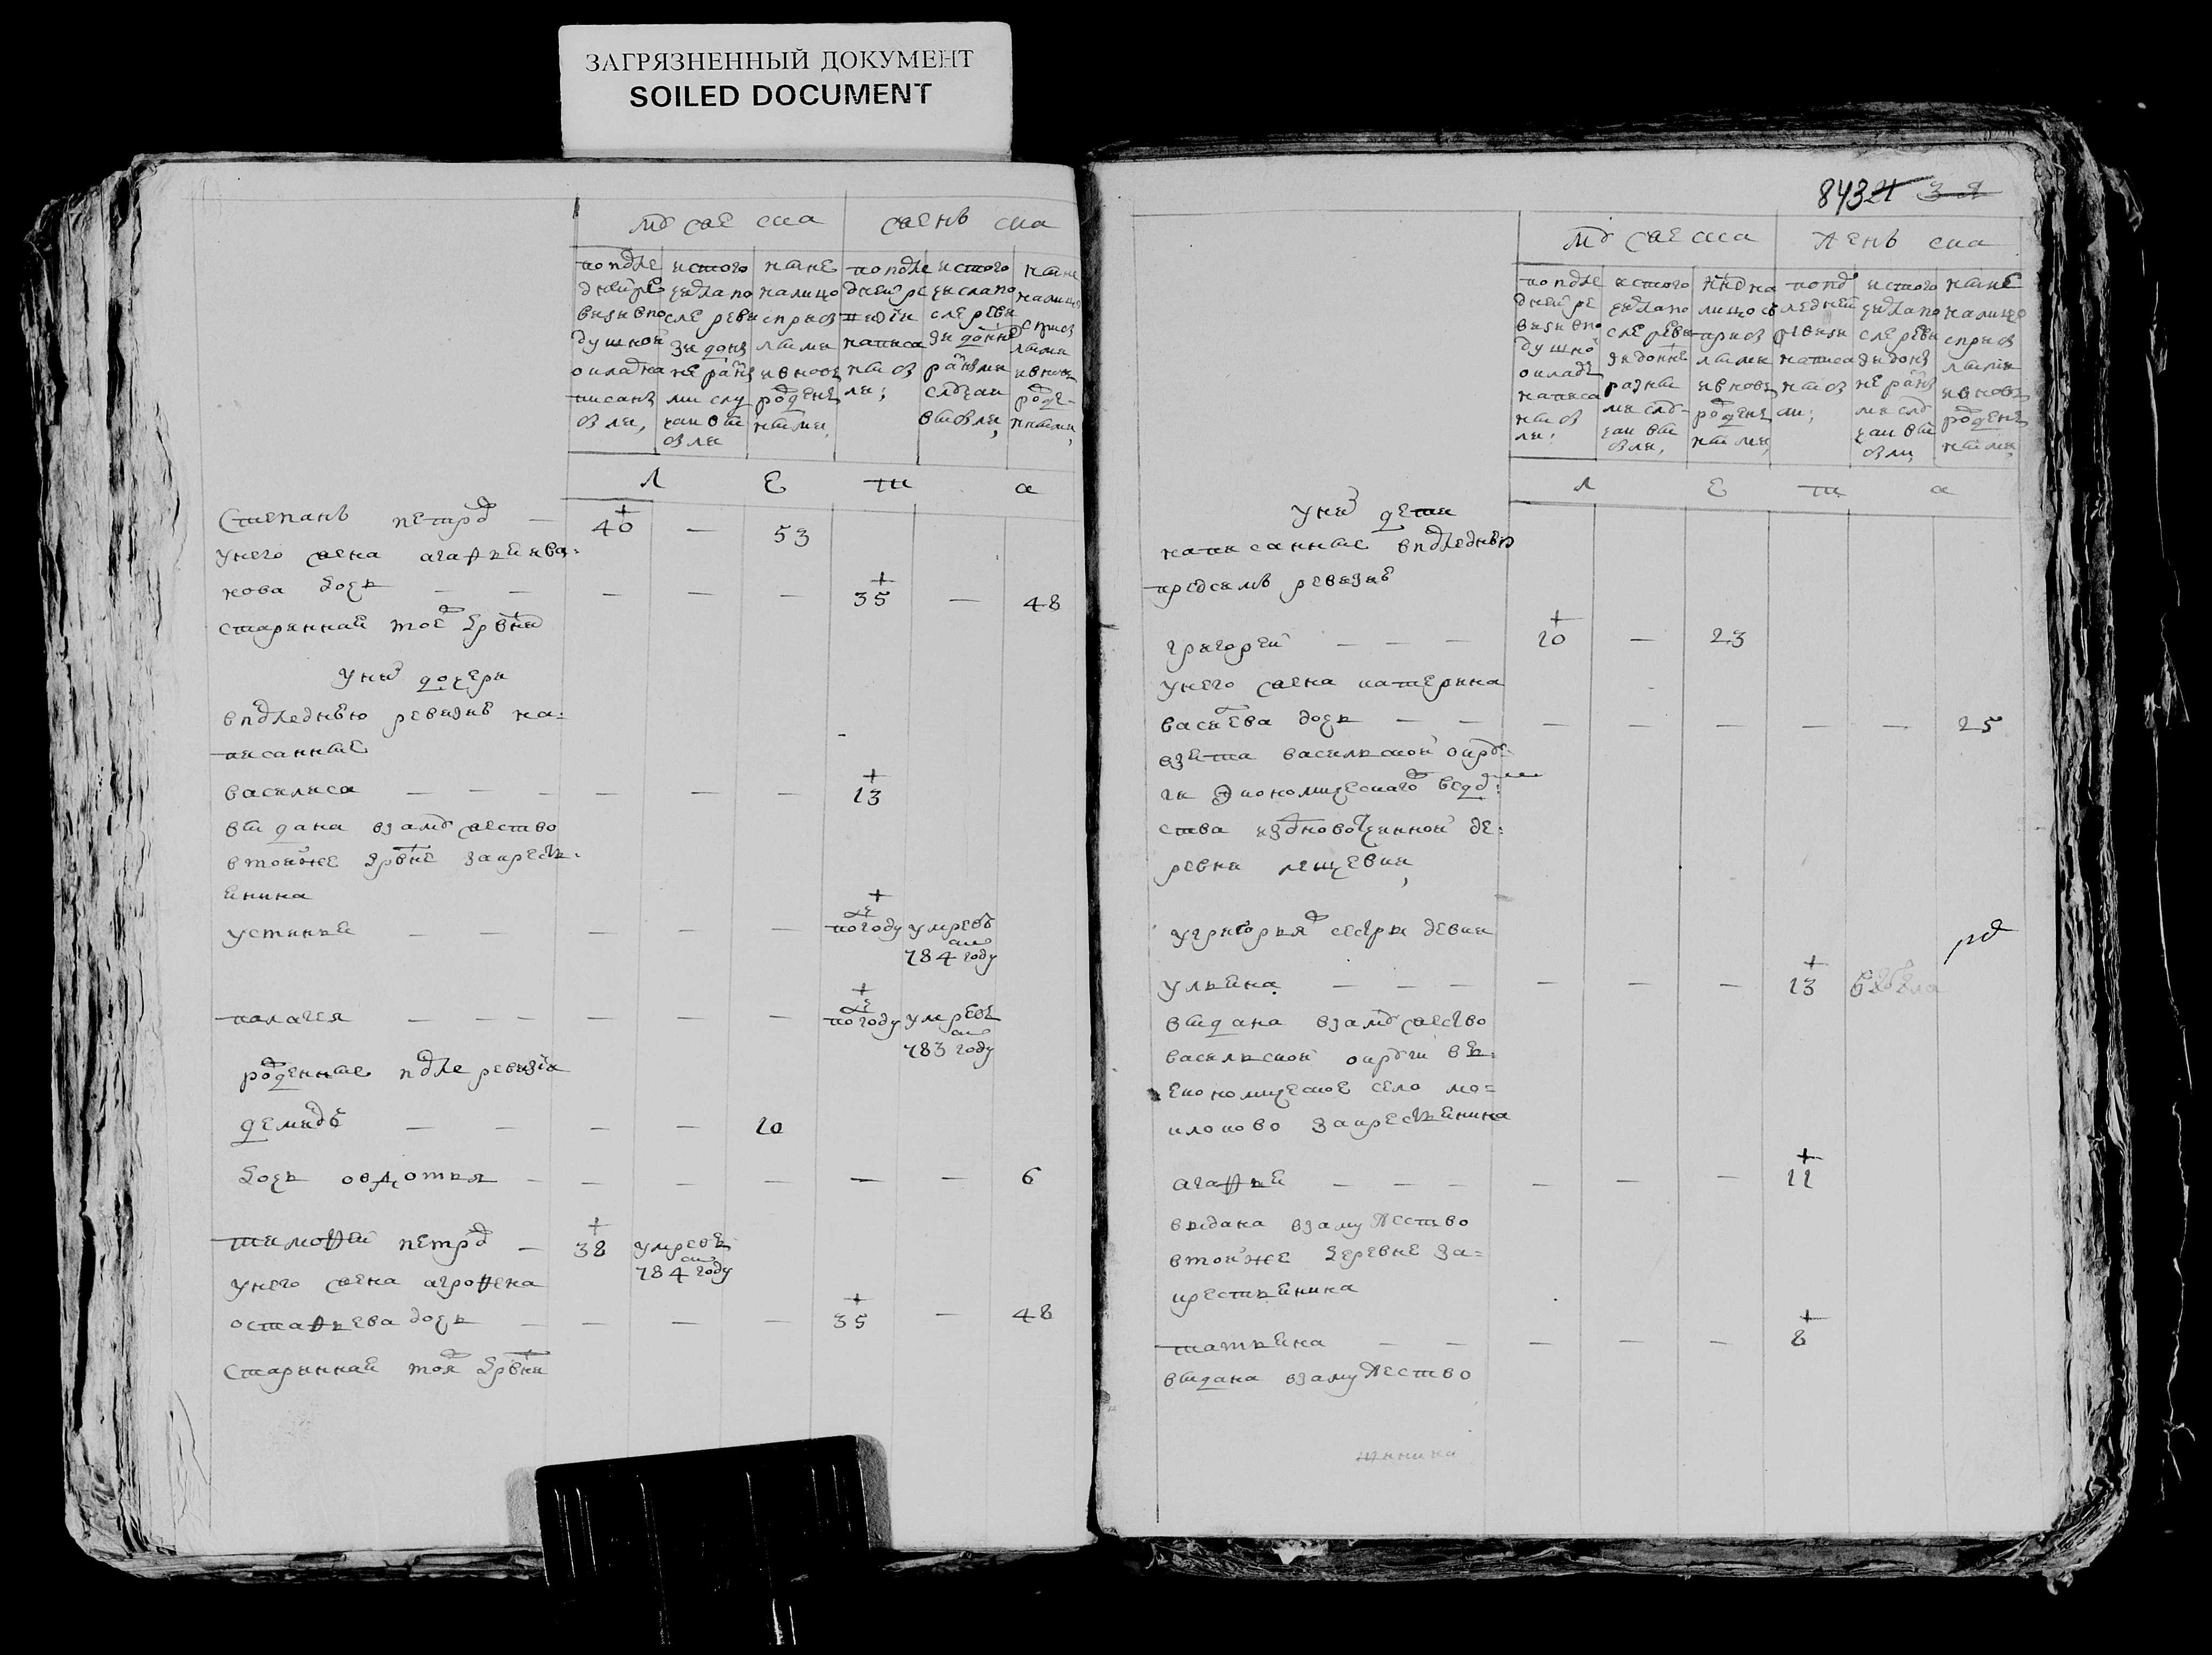 ЗАГРЯЗНЕННЫЙ ДОКУМЕНТ
SOILED DOCUMENT
мужеска женъска
по после дней ре визи в по душной оклад на писанз ыли,
ис того числа по сле реви зи донз не разнз ми слу чаи вы ыли
ныне на лицо с приз лыми и вновз роженз ными,
по после дней ре визи написа ны ыли;
ис того числа по сле реви зи доные разнми случаи выыли,
ныне на лицо с приз лыми и вновз роже- ными,
Л Е Т а
Степанъ петров — 40 — 53
у него жена агафья ива:
нова дочь — — — — — 35 — 48
старинная тое ж дрвни
у них дочери
в последнею ревизию на=
писанные
василиса — — — — — — 13
выдана взамужество
в той же дрвне за кресть:
янина
устинья — — — — — по году умре в 784 году
палагея — — — — — — по году умре в 783 году
рожденные после ревизи
демидъ — — — — 10
дочь овдотья — — — — — — 6
тимофей петров — 38 умре в 784 году
у него жена агрофена
остафьева дочь — — — — 35 — 48
старинная тоя ж дрвни
843
мужеска женъска
по после дней ре визи в по душно окладе написа ны ыли;
ис того числа по сле реви зи донне разны ми слу чаи вы ыли,
нне на лицо с приз лыми и вновз роженз ными,
по последней ревизи написа ны ыли;
ис того числа по сле реви зи донз не разнз ми слу чаи вы ыли
ныне на лицо с приз лыми и вновз роженз ными,
Л Е Т а
у них дети
написанные в последнею
пред симъ ревизию
григорей — — — 20 — 23
у него жена катерина
васильева дочь — — — — — — — 25
взята васильской окру
ги економическаго ведом
ства из новочинной де:
ревни лещевки,
у григорья ж сестры девки
ульяна — — — — — — 13
выдана взамужество
васильской округи въ
економическое село мо=
клоково за крестьянина
агафья — — — — — — 11
выдана взамужество
в той же деревне за=
крестьянина
татьяна — — — — — 8
выдана взамужество